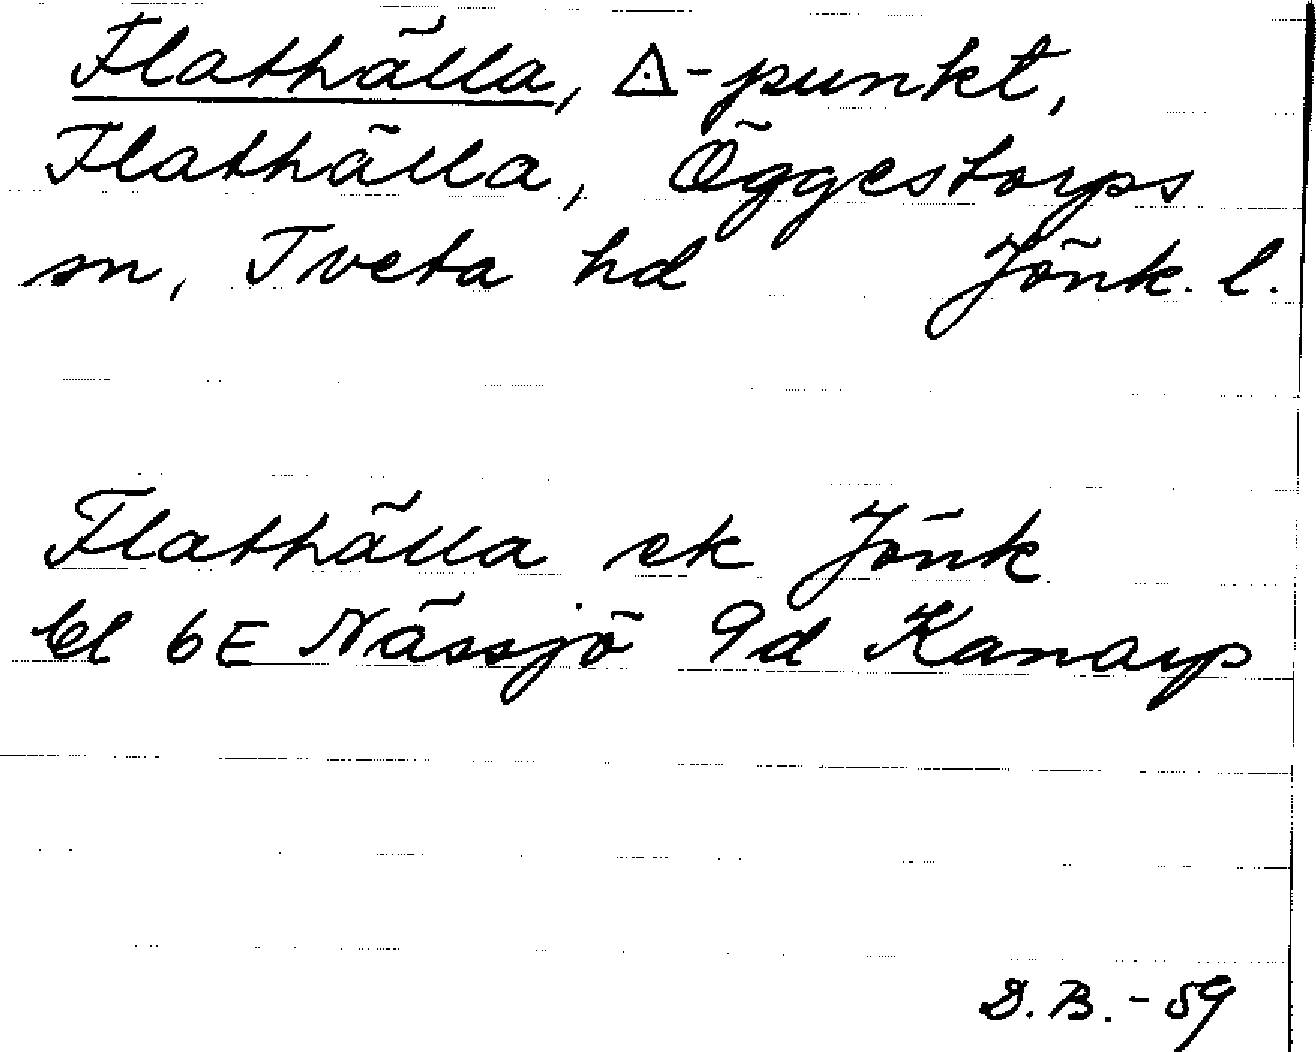 Flathälla, ⟁-punkt,
Flathälla, Öggestorps
sn, Tveta hd Jönk. l.
Flathälla ek Jönk
bl 6E Nässjö 9d Kanarp
D.B.-59